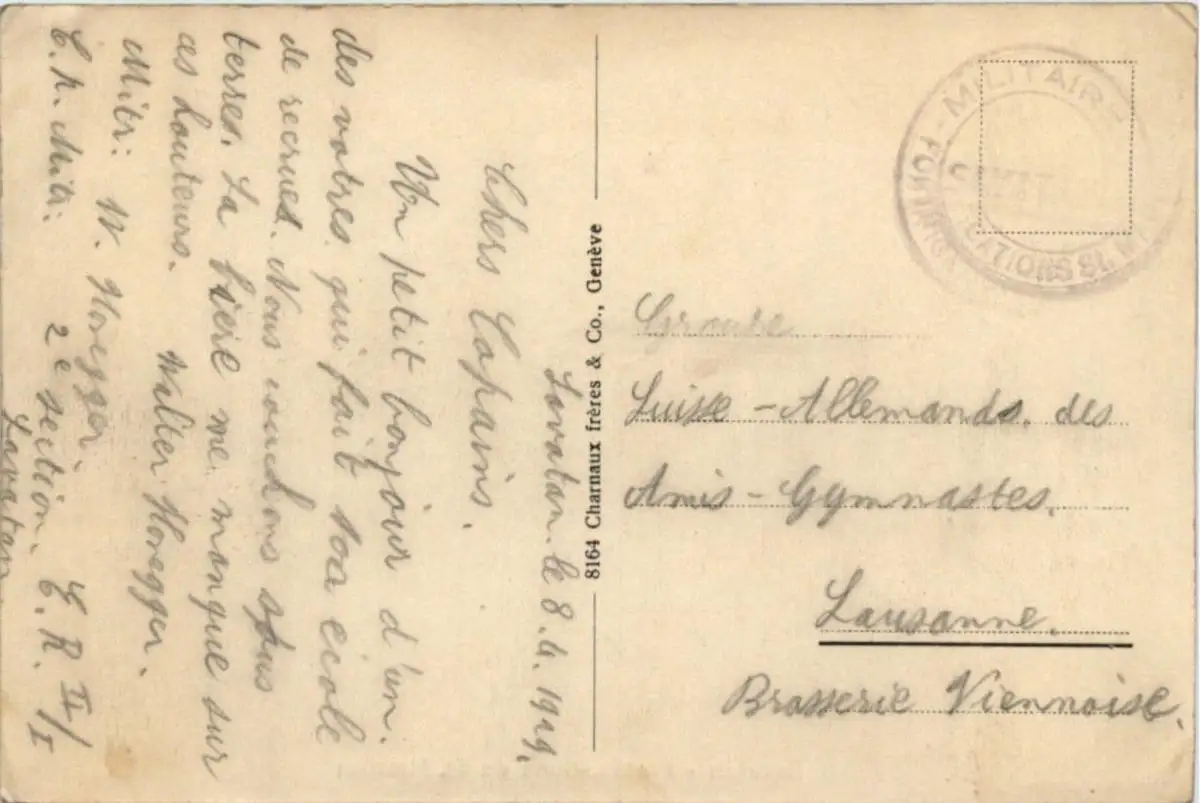 Lavatan. le 8.4.1949.
Chers Copains.
Un petit bonjour d'un.
des votres qui fait son école
de recrues. Nous couchons sous
terres. La bière me manque sur
ces hauteurs. Walter Honegger.
Mitr: W. Honegger.
2e section. E.R. II/I
E.R. Mitr. Lavatan
8164 Charnaux frères & Co., Genève
MILITAIRE
Groupe
Suisse-Allemands. des
Amis-Gymnastes.
Lausanne.
Brasserie Viennoise.